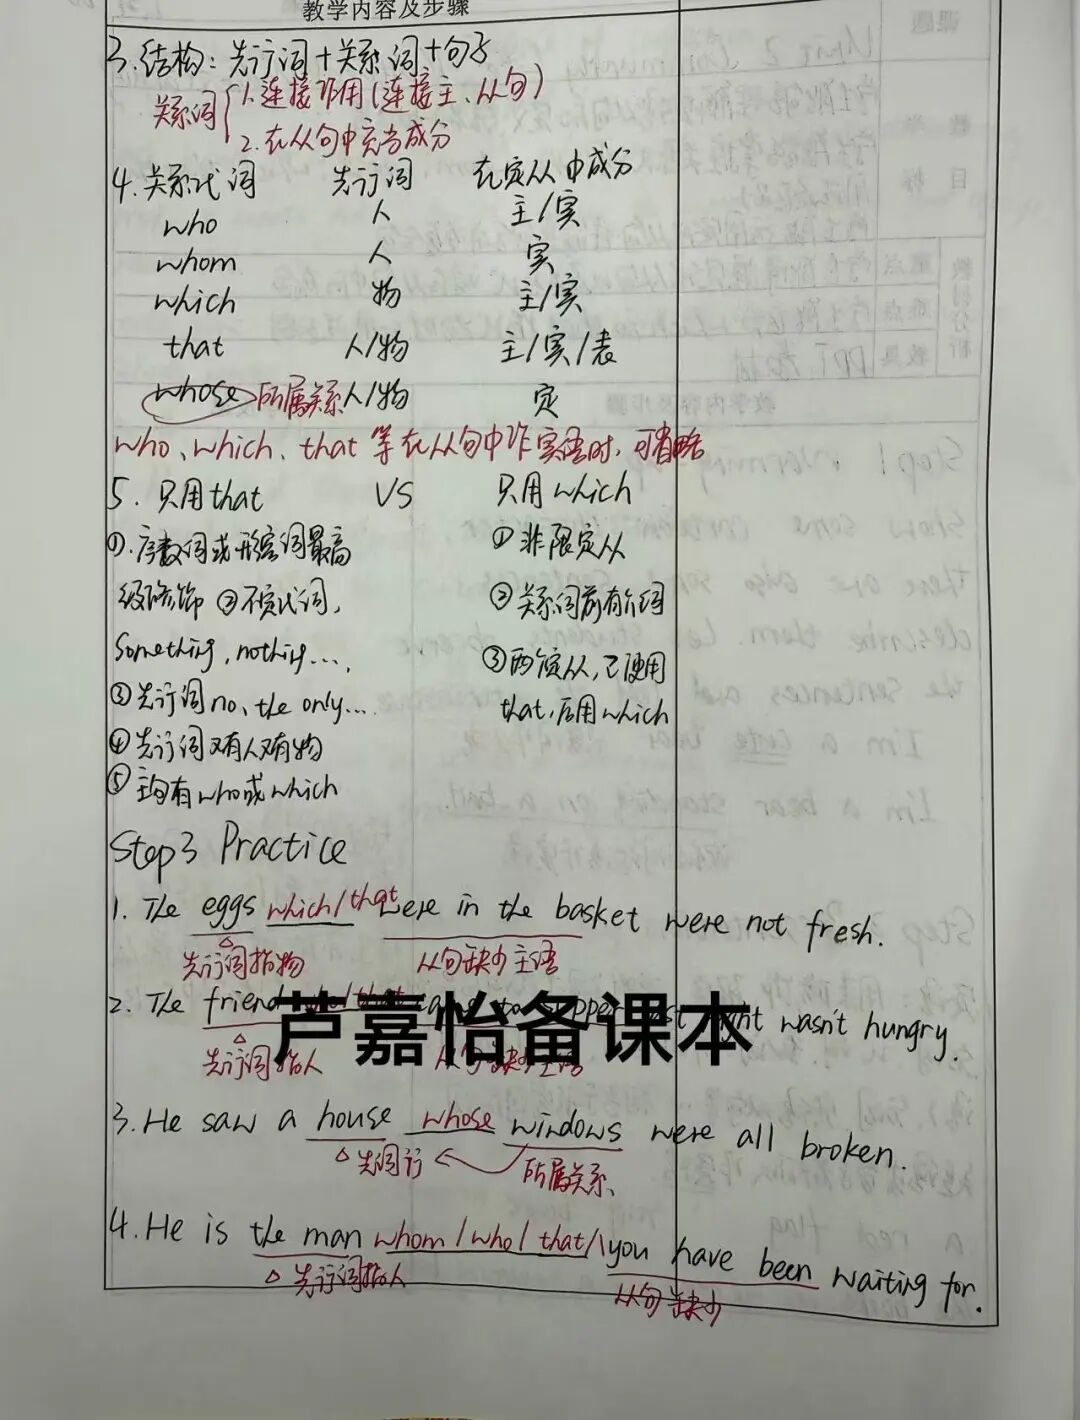 教学内容及步骤
3.结构：先行词+关系词+句子
关系词 1.连接作用(连接主、从句)
2.在从句中充当成分
4.关系代词 先行词 在定从中成分
who 人 主/宾
whom 人 宾
which 物 主/宾
that 人/物 主/宾/表
whose 所属关系 人/物 定
who、which、that 等在从句中作宾语时，可省略
5.只用that VS 只用which
①.序数词或形容词最高 ①非限定从
级修饰 ②不定代词， ②关系词前有介词
Something, nothing..., ③两定从，已使用
③先行词no, the only... that，后用which
④先行词又有人又有物
⑤主句有who或which
Step3 Practice
1. The eggs which/that were in the basket were not fresh.
先行词指物 从句缺少主语
2. The friend who/that came to supper last night wasn't hungry.
芦嘉怡备课本
先行词指人 从句缺少主语
3. He saw a house whose windows were all broken.
先词行 所属关系
4. He is the man whom/who/that/\you have been waiting for.
先行词指人 从句缺少